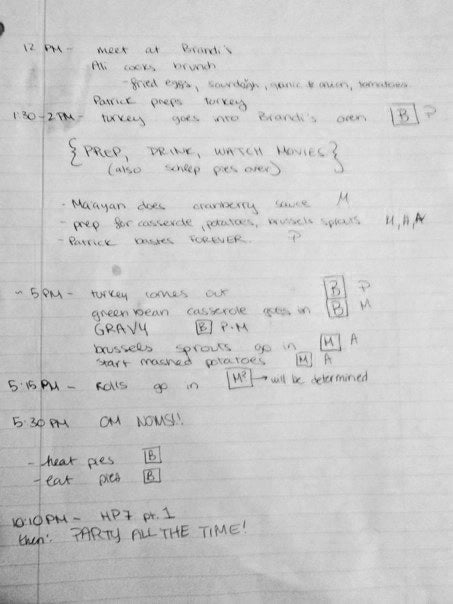 12 PM - meet at Brandi's
Alli cooks brunch
- fried eggs, sourdough, garlic & onion, tomatoes
Patrick preps turkey
1:30-2PM - turkey goes into Brandi's oven B P
{PREP, DRINK, WATCH MOVIES}
(also schlep pies over)
- Ma'ayan does cranberry sauce M
- prep for casserole, potatoes, brussels sprouts M, A, A
- Patrick bastes FOREVER. P
~ 5PM - turkey comes out B P
green bean casserole goes in B M
GRAVY B P-M
brussels sprouts go in M A
start mashed potatoes M A
5:15 PM - Rolls go in M? → will be determined
5:30 PM OM NOMS!!
- heat pies B
- eat pies B
10:10 PM - HP7 pt. 1
then: PARTY ALL THE TIME!